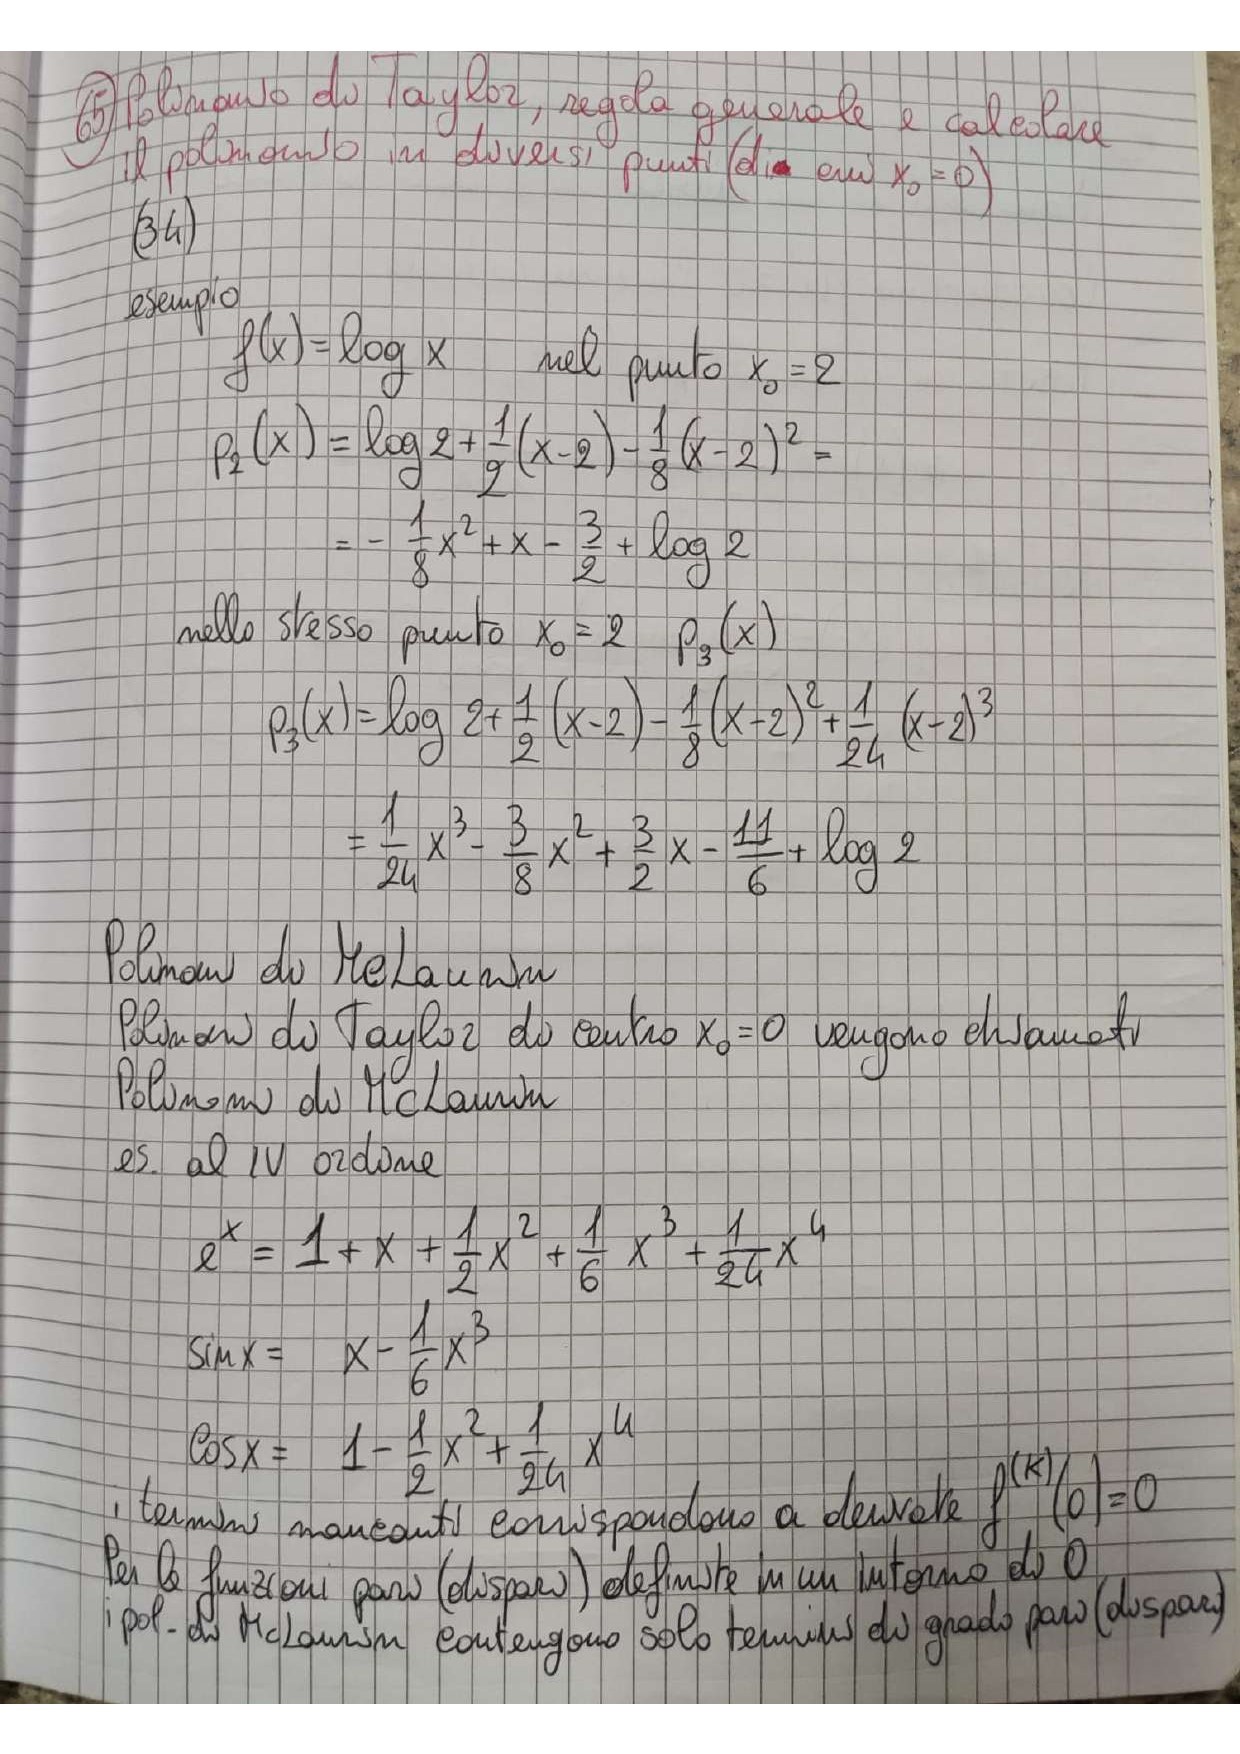 65) Polinomio di Taylor, regola generale e calcolare
il polinomio in diversi punti (di cui x₀=0)
(34)
esempio
f(x)=log x nel punto x₀=2
p₂(x)=log 2+1/2(x-2)-1/8(x-2)²=
=-1/8x²+x-3/2+log 2
nello stesso punto x₀=2 p₃(x)
p₃(x)=log 2+1/2(x-2)-1/8(x-2)²+1/24(x-2)³
=1/24x³-3/8x²+3/2x-11/6+log 2
Polinomi di McLaurin
Polinomi di Taylor di centro x₀=0 vengono chiamati
Polinomi di McLaurin
es. al IV ordine
eˣ=1+x+1/2x²+1/6x³+1/24x⁴
sin x= x-1/6x³
Cos x= 1-1/2x²+1/24x⁴
i termini mancanti corrispondono a derivate f⁽ᴷ⁾(0)=0
Per le funzioni pari (dispari) definite in un intorno di 0
i pol. di McLaurin contengono solo termini di grado pari (dispari)